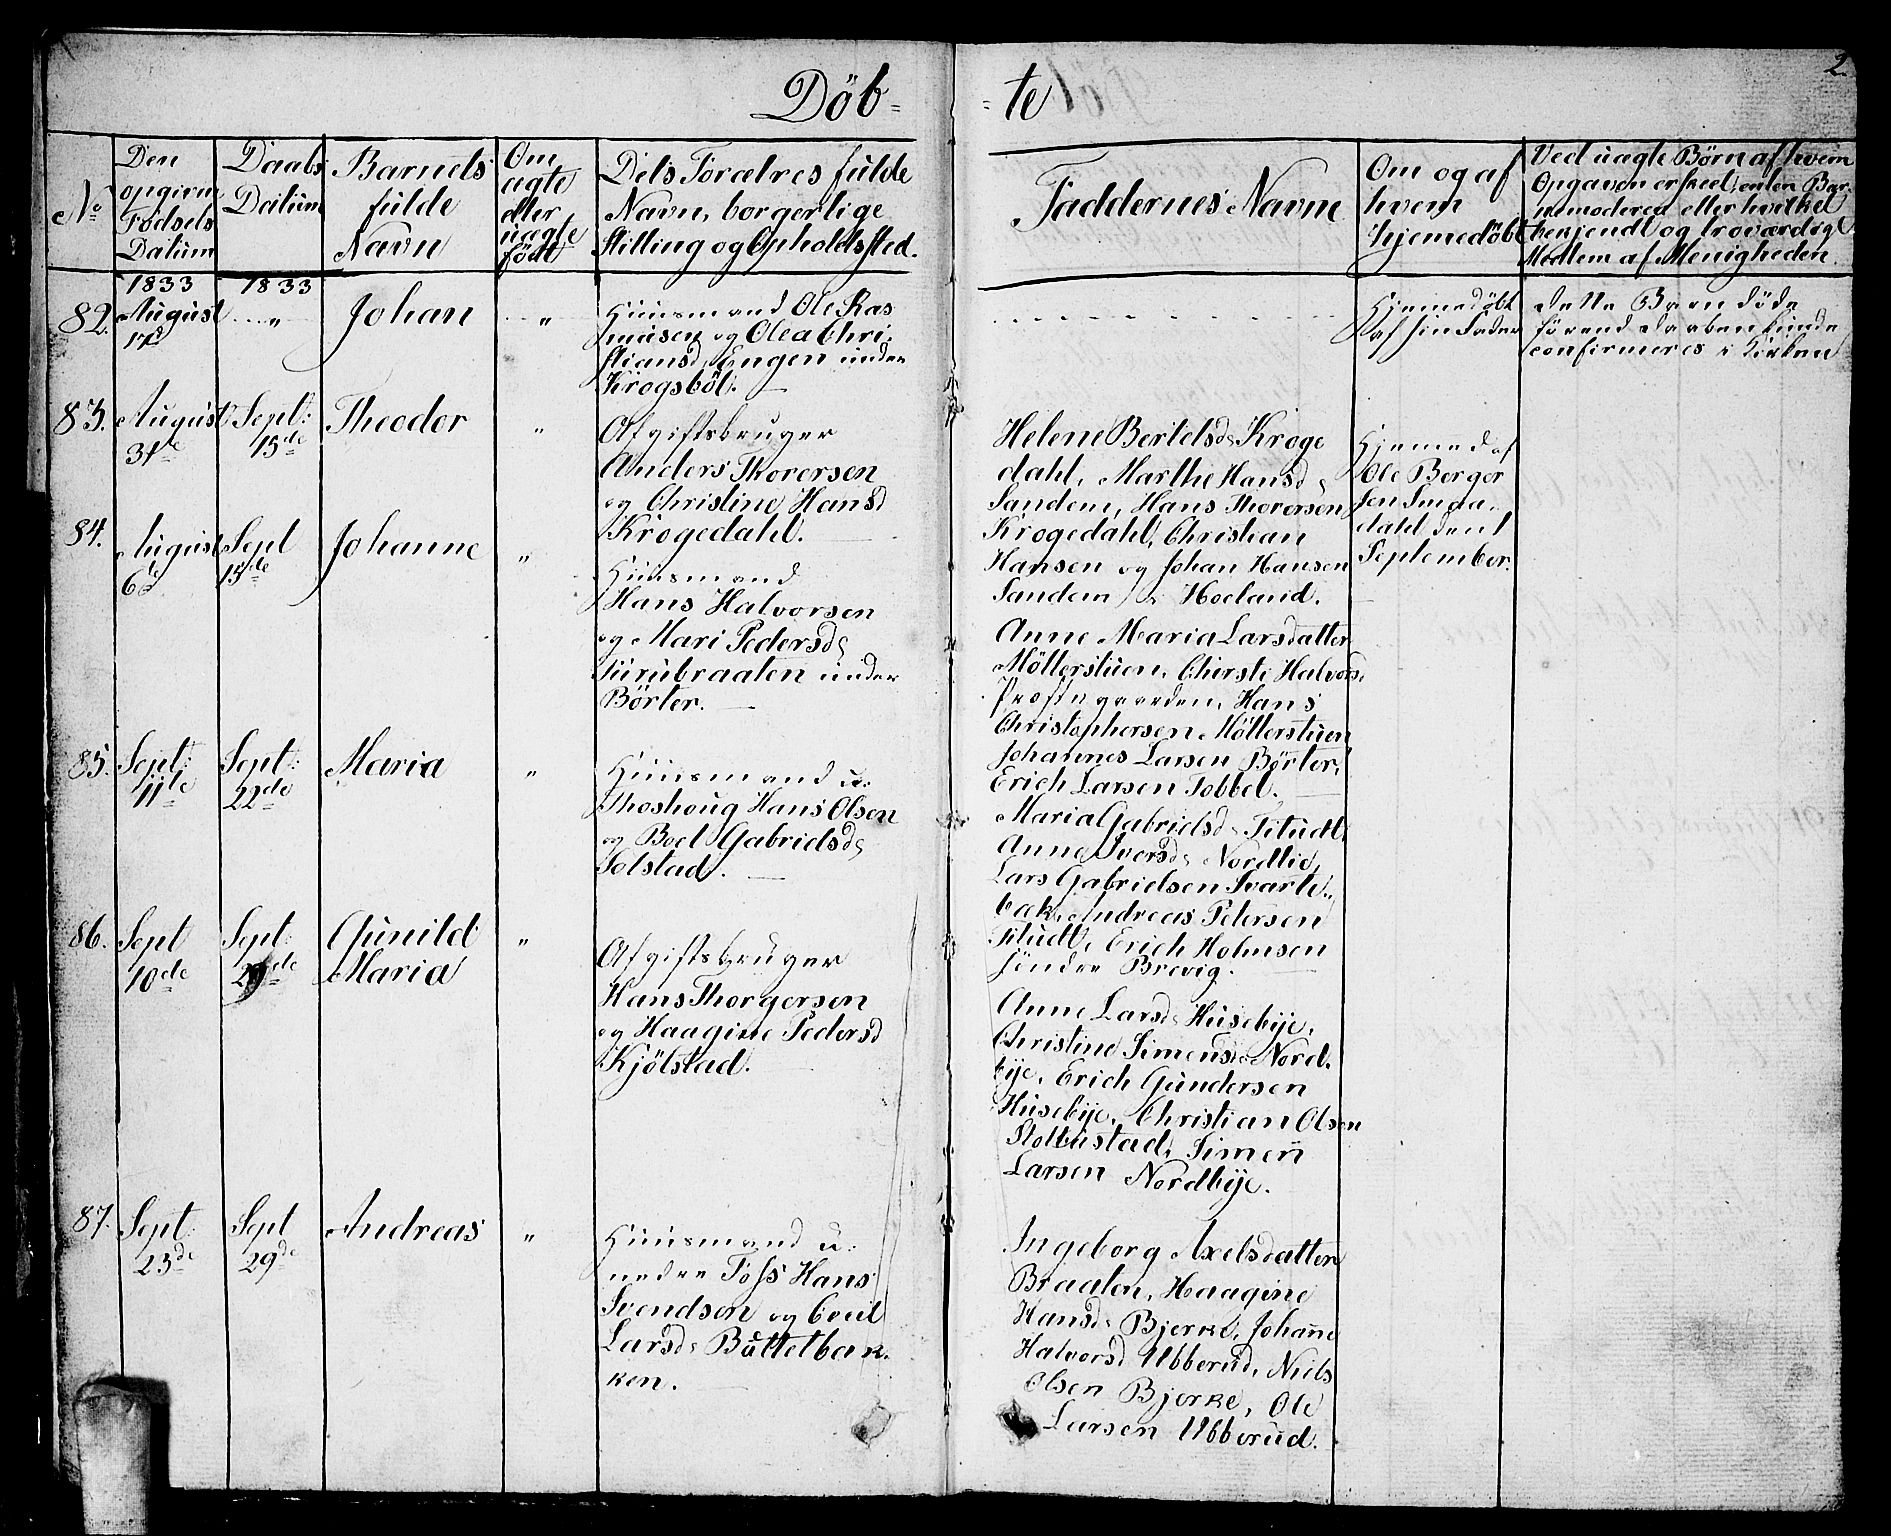 2.
Döb=
=te
No
Den
opgivne
Födsels
Datum
Daabs
Datum
Barnets
fulde
Navn
Om
ægte
eller
uægte
födt
Dets Forælres fulde
Navn, borgerlige
Stilling og Opholdssted.
Faddernes Navne
Om og af
hvem
hjemedöbt
Ved uægte Børn af hvem
Opgaven er skeet, enten Bar-
nemoderen eller hvilket
bekjendt og troværdigt
Medlem af Menigheden.
1833
1833
82.
August
17d
"
Johan
"
Huusmand Ole Ras
musen og Olea Chri
stiansd Engen under
Krogsböl.
Hjemmedöbt
af sin Fader
dette Barn döde
förend Daaben kunde
confirmeres i Kirken
83.
August
31te
Sept:
15de
Theodor
"
Afgiftsbruger
Anders Thorersen
og Christine Hansd
Krogedahl.
Helene Bertelsd Kroge
dahl, Marthe Hansd
Sandem, Hans Thorersen
Krogedahl, Christian
Hansen og Johan Hansen
Sandem i Hoeland.
Hjemmed af
Ole Berger
sen Smaa-
dahl den 1
September.
84.
August
6d
Sept
15de
Johanne
"
Huusmand
Hans Halvorsen
og Mari Pedersd
Furubraaten under
Börter.
Anne Maria Larsdatter
Möllerstuen, Chirsti Halvorsd
Prestegaarden, Hans
Christophersen Möllerstuen
Johannes Larsen Börter,
Erich Larsen Tobbel.
85.
Sept:
11te
Sept:
22de
Maria
"
Huusmand u.
Thoshoug Hans Olsen
og Boel Gabrielsd
Solstad.
Maria Gabrielsd Situdt
Anne Iversd Nordlie,
Lars Gabrielsen Svarte..
bæk, Andreas Petersen
Situdt, Erich Holmsen
söndre Brevig.
86.
Sept
10de
Sept:
29de
Gunild
Maria
"
Afgiftsbruger
Hans Thorgersen
og Haagine Pedersd
Kjölstad.
Anne Larsd Husebye,
Christine Simensd Nord
bye, Erich Gundersen
Husebye, Christian Olsen
Stottustad, Simen
Larsen Nordbye.
87.
Sept
23de
Sept
29de
Andreas
"
Huusmand u.
nedre Toss Hans
Svendsen og Eveil
Larsd Buttelbak
ken.
Ingeborg Axelsdatter
Braaten, Haagine
Hansd Bjerke, Johane
Halvorsd Ubberud, Niels
Olsen Bjerke, Ole
Larsen Ubberud.